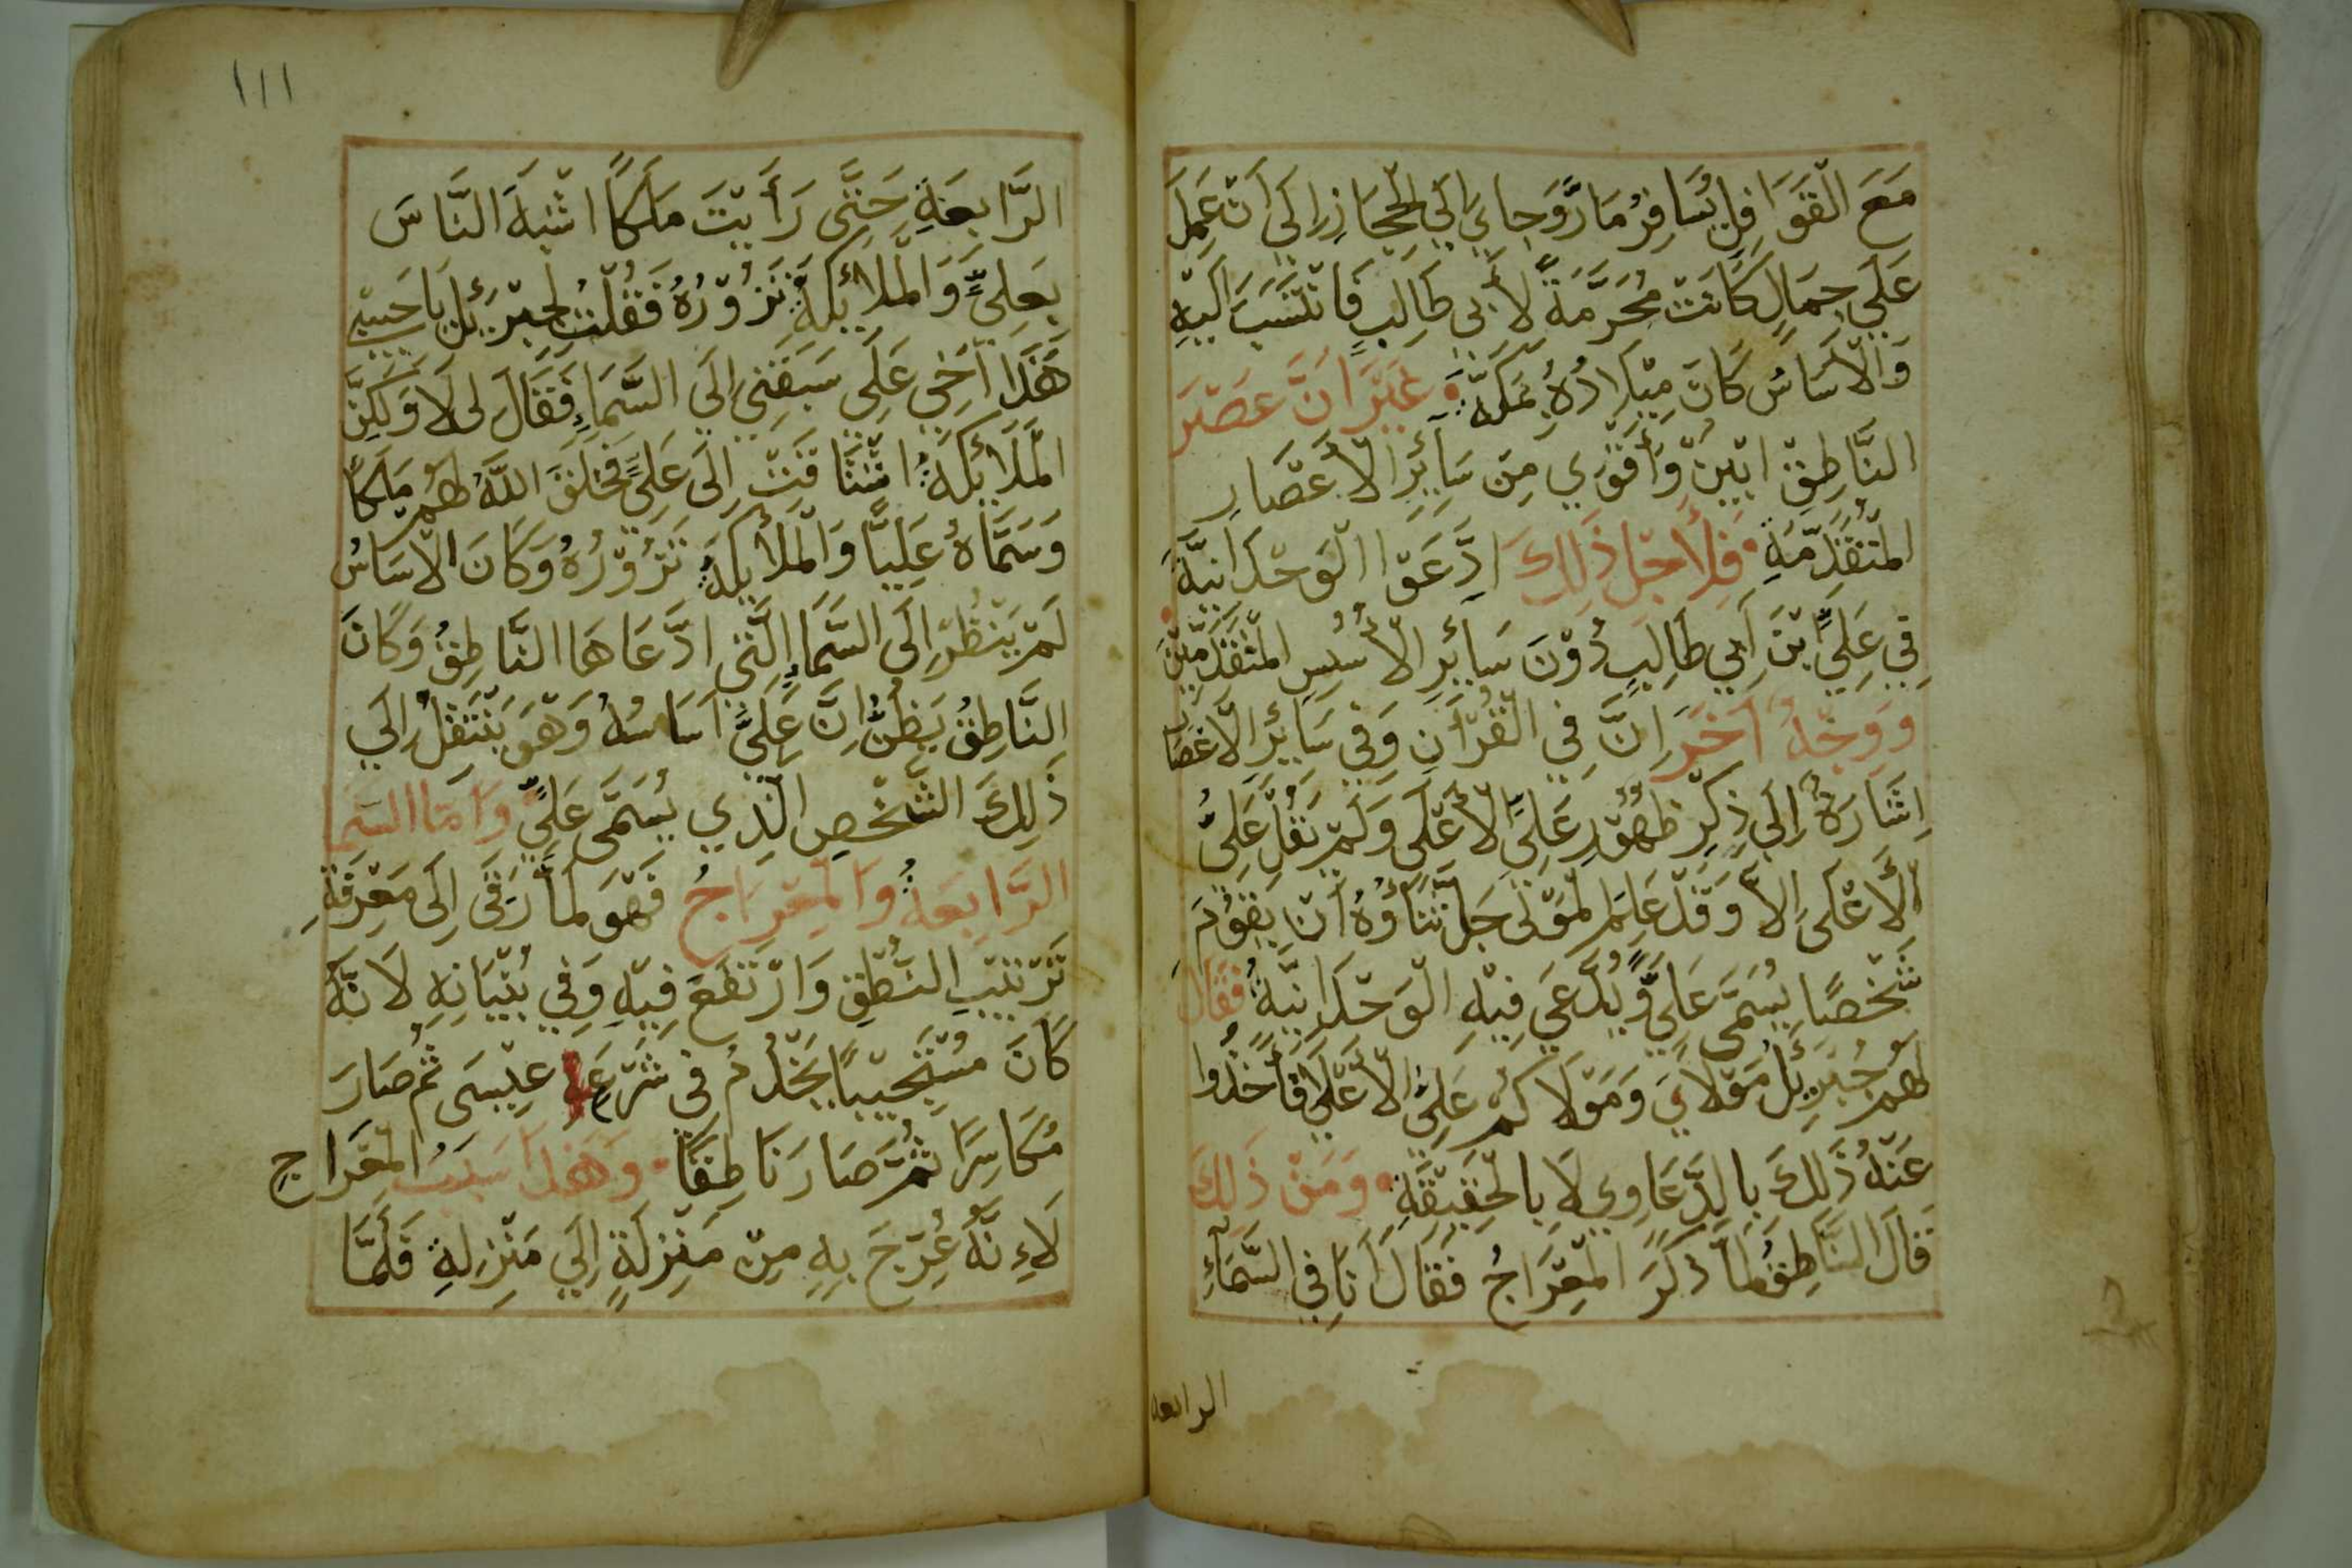 مَعَ الْقَوَافِلِ يُسَافِرُ مَارًّ وَجاءِي اِلَي الْحِجَازِ اِلَي اَنْ عَمِلَ
عَلَي جِمَالٍ كَانَتْ مُحَرَّمَةً لأَبى طَالِبٍ فَانْتَسَبَ اَلَيْهِ
وَالْأَسَاسُ كَانَ مِيْلَادُهُ بِمَكَّةَ وَغَيْرَ اَنَّ عَصْرَ
النَّاطِقِ ابْيَنُ وَأَقْوَي مِنْ سَآئِرِ الْأَعْصَارِ
الْمُتَقَدِّمَةِ فَلِأَجْلِ ذَلِكَ ادَّعَوْا الْوَحْدَانِيَّةَ
فِي عَلِيِّ بْنَ اَبِي طَالِبٍ دُوْنَ سَآئِرِ الْأُسُسِ الْمُتَقَدِّمِيْنَ
وَوَجْهٌ اَخَرَ اِنَّ فِي الْقُرْاَنِ وَفِي سَآئِرِ الْأَعْصَارِ
اِشَارَةً اِلَي ذِكْرِ ظُهُوْرِ عَلِيَّ الْأَعْلَى وَلَمْ يَقُلْ عَلِيُّ
الْأَعْلَى اِلاَّ وَقَدْ عَلِمَ الْمَوْلَى جَلَّ ثَنَاؤُهُ اَنْ يَقُوْمَ
شَخْصًا يُسَمَّى عَلِيَّ وَّيُدَّعَي فِيْهِ الْوَحْدَانِيَّةُ فَقَالَ
لَهُمْ جُبَرِيْلُ مَوْلَايَ وَمَوْلَاكُمْ عَلِيُّ الْأَعْلَى فَأَخَذُوا
عَنْهُ ذَلِكَ بِالدَّعَاوِي لَا بِالْحَقِيْقَةِ وَمَنْ ذَلِكَ
قَالَ النَّاطِقُ لَمَّا ذَكَرَ الْمِعْرَاجُ فَقَالَ اَنَا فِي السَّمَآءِ
الرابعه
١١١
الرَّابِعَةِ حَتَّى رَأَيْتَ مَلَكًا اشْبَهَ النَّاسَ
بِعَلِيَّ وَالْمَلَائِكَةِ تَزُوْرُهُ فَقُلْتُ لِجِبْرَئِيْلَ يَا حَبِيْبِي
هَذَا اَخِي عَلِي سَبَقَنِي اِلَي السَّمَاءِ فَقَالَ لِى لَا وَلَكِنَّ
الْمَلَائِكَةُ اشْتَاقَتْ اِلَى عَلِيَّ فَخَلَقَ اللَّهُ لَهُمْ مَلَكًا
وَسَمَّاهُ عَلِيًّا وَالْمَلَائِكَةُ تَزُوْرُهُ وَكَانَ الْأَسَاسُ
لَمْ يَنْظُرْ اِلَى السَّمَاءِ الَّتِي ادَّعَاهَا النَّاطِقُ وَكَانَ
النَّاطِقُ يَظُنُّ اِنَّ عَلِيَّ اَسَاسُهُ وَهُوَ يَنْتَقِلُ اِلَي
ذَلِكَ الشَّخْصِ الَّذِي يُسَمَّى عَلِيَّ وَامَّا السَّمَا
الرَّابِعَةُ وَالْمِعْرَاجُ فَهُوَ لَمَّا رَقَى اِلَى مَعْرِفَةِ
تَرْتِيْبِ النُّطْقِ وَارْتَفَعَ فِيْهِ وَفِي بُنْيَانِهِ لَانَّهُ
كَانَ مُسْتَجِيْبًا يَخْدُمُ فِي شَرْعِ عِيْسَى ثُمَّ صَارَ
مُكَاسِرًا ثُمَّ صَارَ نَاطِقًا وَهَذَا سَبَبُ الْمِعْرَاجِ
لَاءِنَّهُ عُرِّجَ بِهِ مِنْ مَنْزِلَةٍ اِلَي مَنْزِلِةِ فَلَمَّا